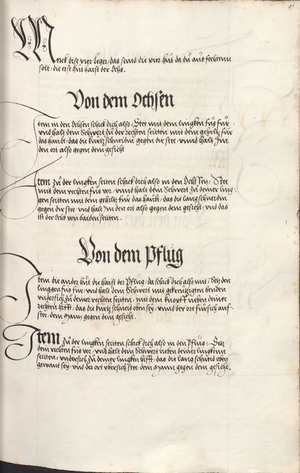 Merck dise vier leger, das send die vier hut da du auß fechtenn
solt, die erst hut haist der Ochs.
Von dem Ochsen
Item in den Ochsen schick dich also, Stee mit dem lingken fuß fur
vnd halt dein schwert zu der rechten seitten mit dem gehiltz fur
das haubt, das die kurtz schneid gegen dir stee, vnnd halt Im
den ort also gegen dem gesicht
Item zu der lingken seitten schick dich also in den Ochssen, Stee
mit dem rechten fuß vor, vnnd halt dein schwert zu deiner ling
gen seitten mit dem gehiltz fur das haubt, das die lang schneid
gegen dir stee, vnd halt Im den ort also gegen dem gesicht, vnd das
ist der Ochs von baiden seitten.
Von dem Pflug
Item die ander hut die haist der Pflug, da schick dich also mit, Setz den
linggen fuß fur, vnd halt dein schwert mit gekreutzigten henden
vndersich zu deiner rechten seitten, mit dem knopff neben deiner
rechten hufft, das die kurtz schneid oben sey, vnnd der ort für sich auf
stee, dem mann gegen dem gesicht.
Item zu der lingken seitten schick dich also in den Pflug, Setz
den rechten fuß vor, vnd halt dein schwert neben deiner lingkenn
seitten, vndersich zu deiner lingken hufft, das die lang schneid oben
gewant sey, vnd der ort vbersich stee, dem mann gegen dem gesicht.